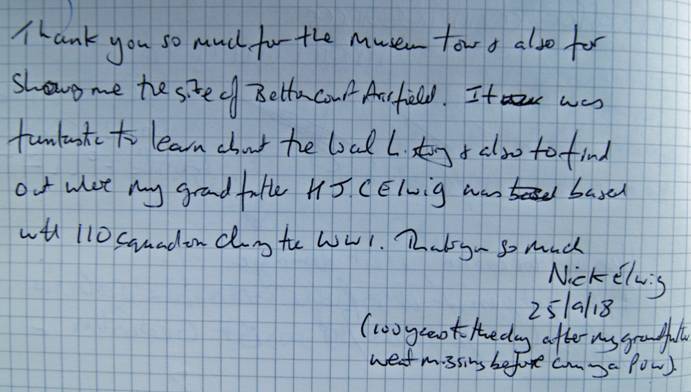 Thank you so much for the Museum Tour & also for
Showing me the site of Bettencourt Airfield. It was
fantastic to learn about the local history & also to find
out where my grandfather H J.C Elwig was based based
with 110 squadron during the WW1. Thank you so much
Nick Elwig
25/9/18
(100 years to the day after my grandfather
went missing before coming a POW).